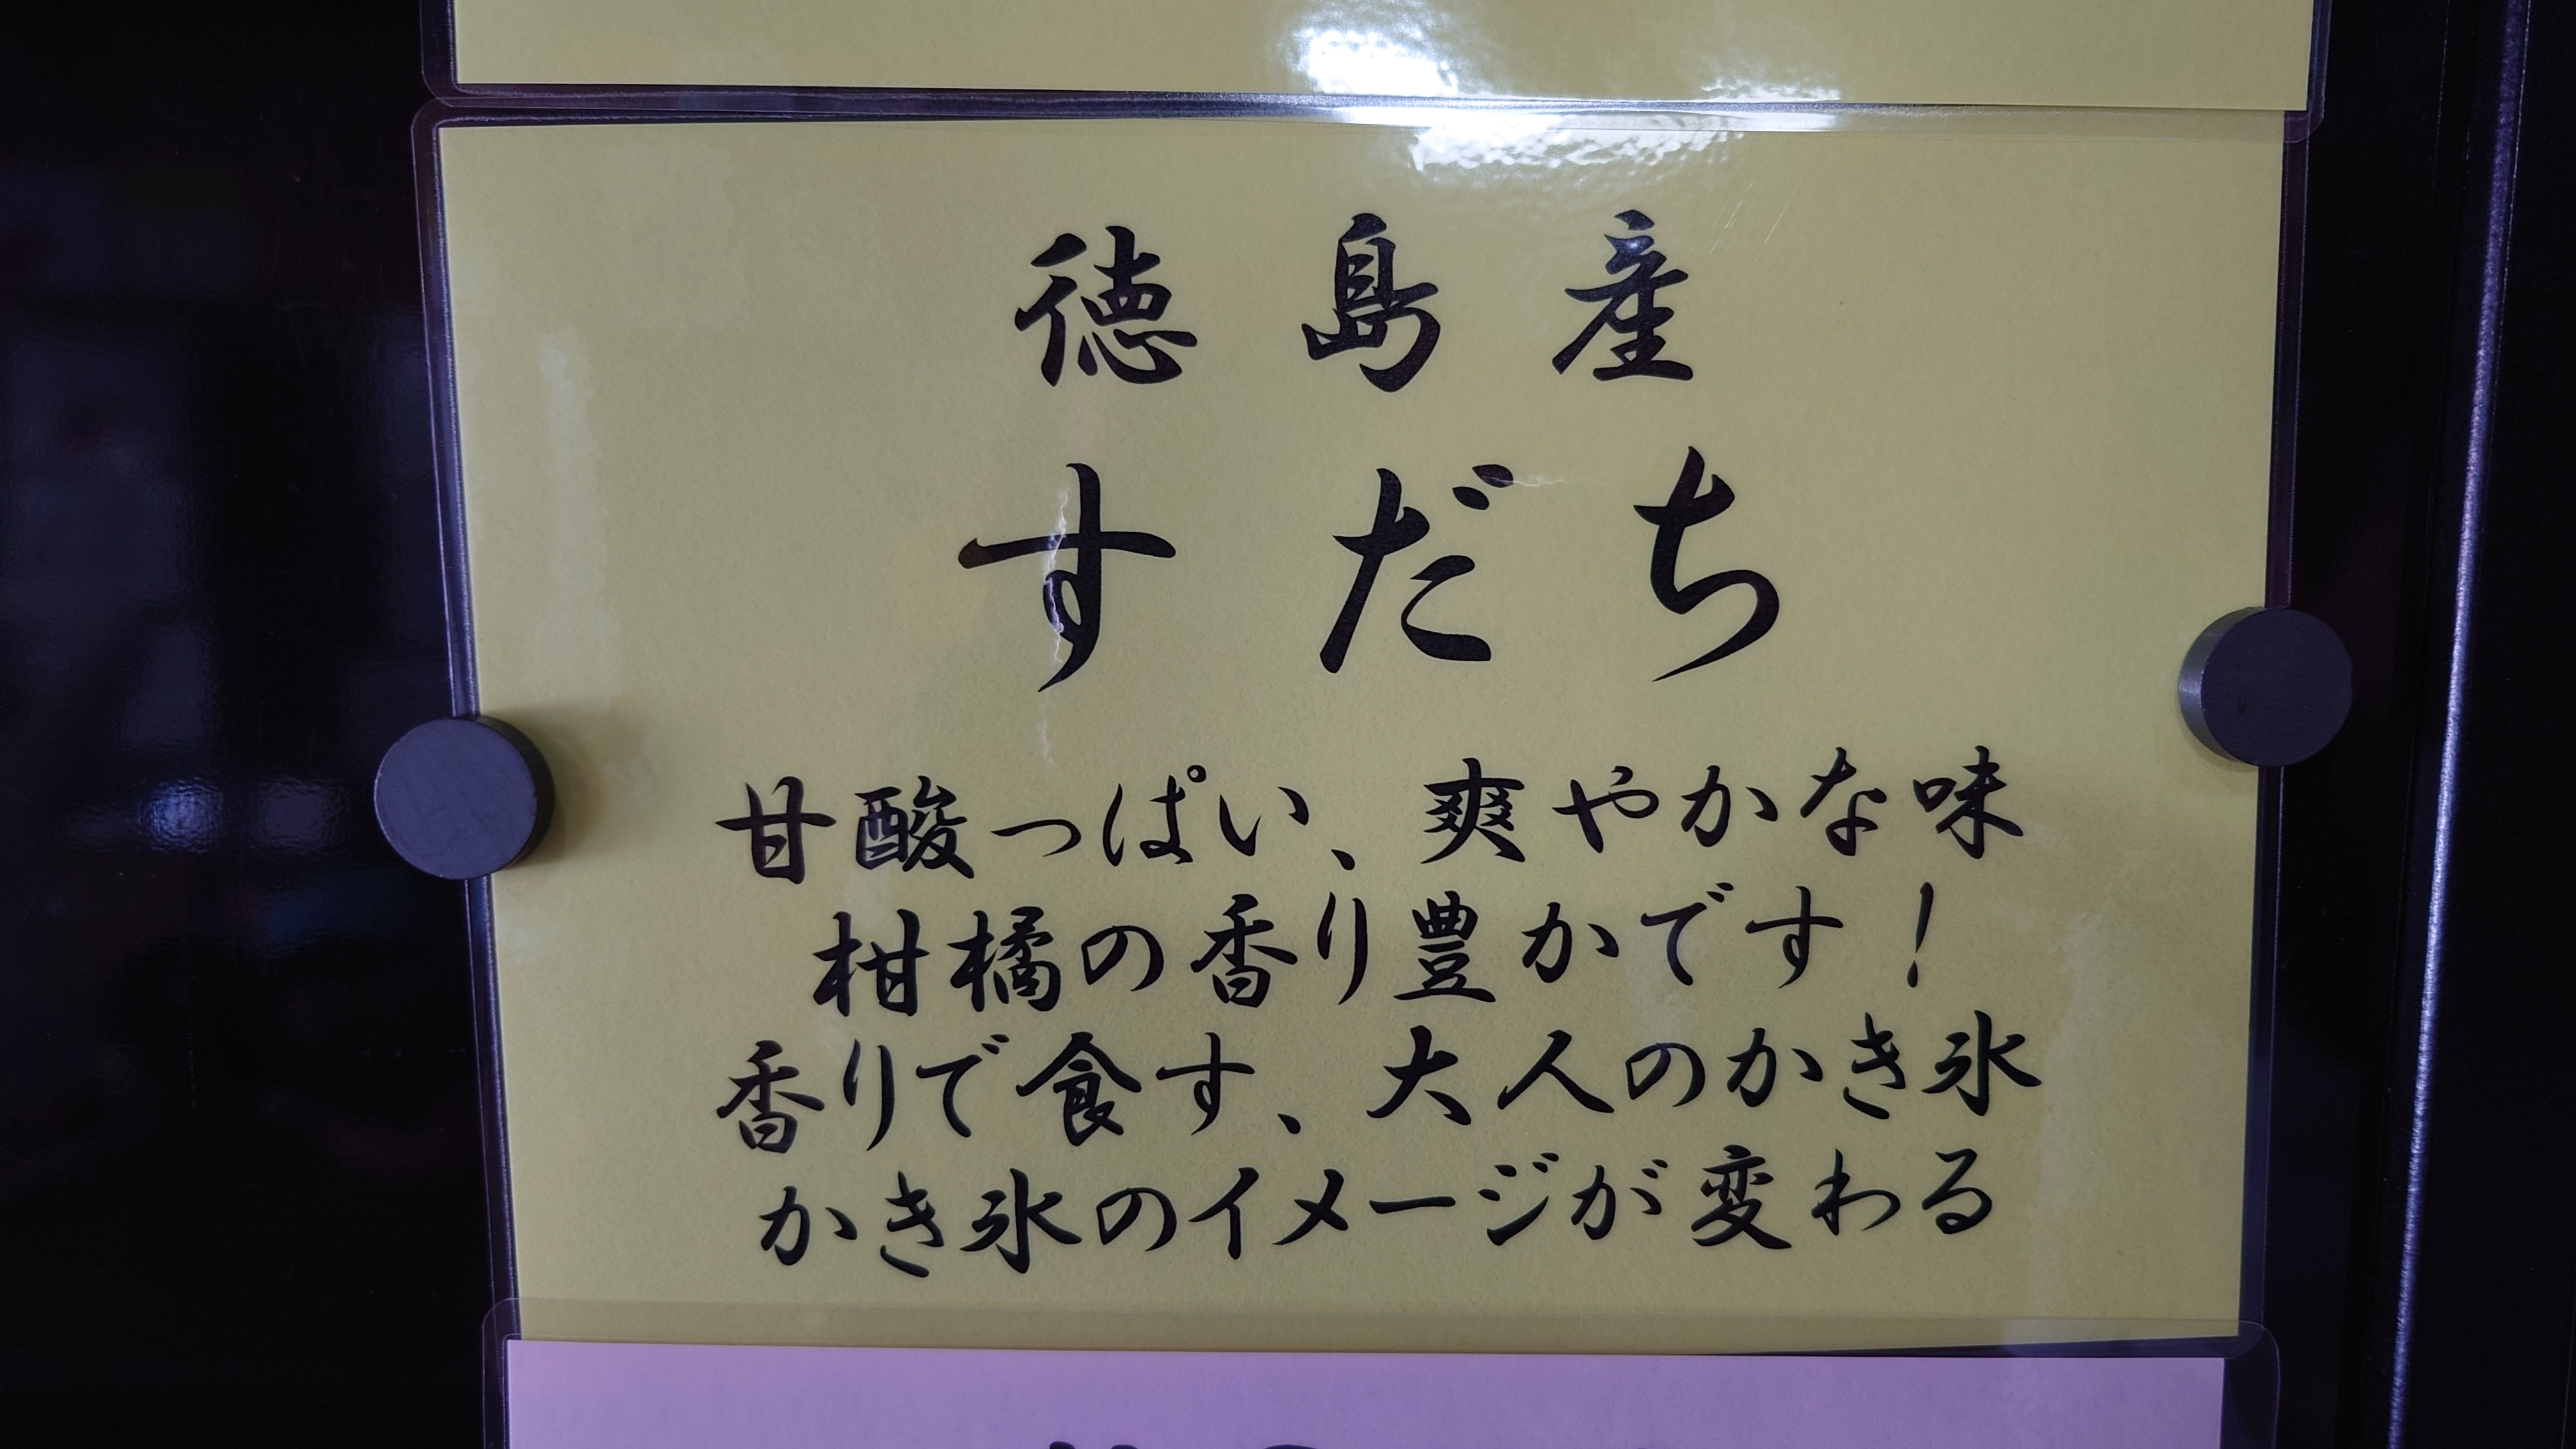 徳島産
すだち
甘酸っぱい、爽やかな味
柑橘の香り豊かです！
香りで食す、大人のかき氷
かき氷のイメージが変わる